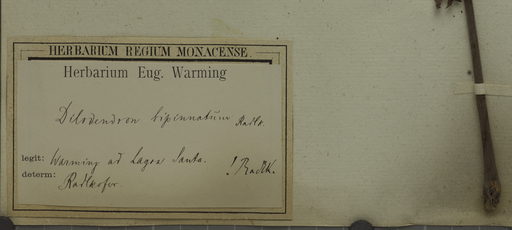 HERBARIUM REGIUM MONACENSE.
Herbarium Eug. Warming
Dilodendron bipinnatum Radlk.
legit: Warming ad Lagoa Santa.
determ: Radlkofer. ! Radlk.